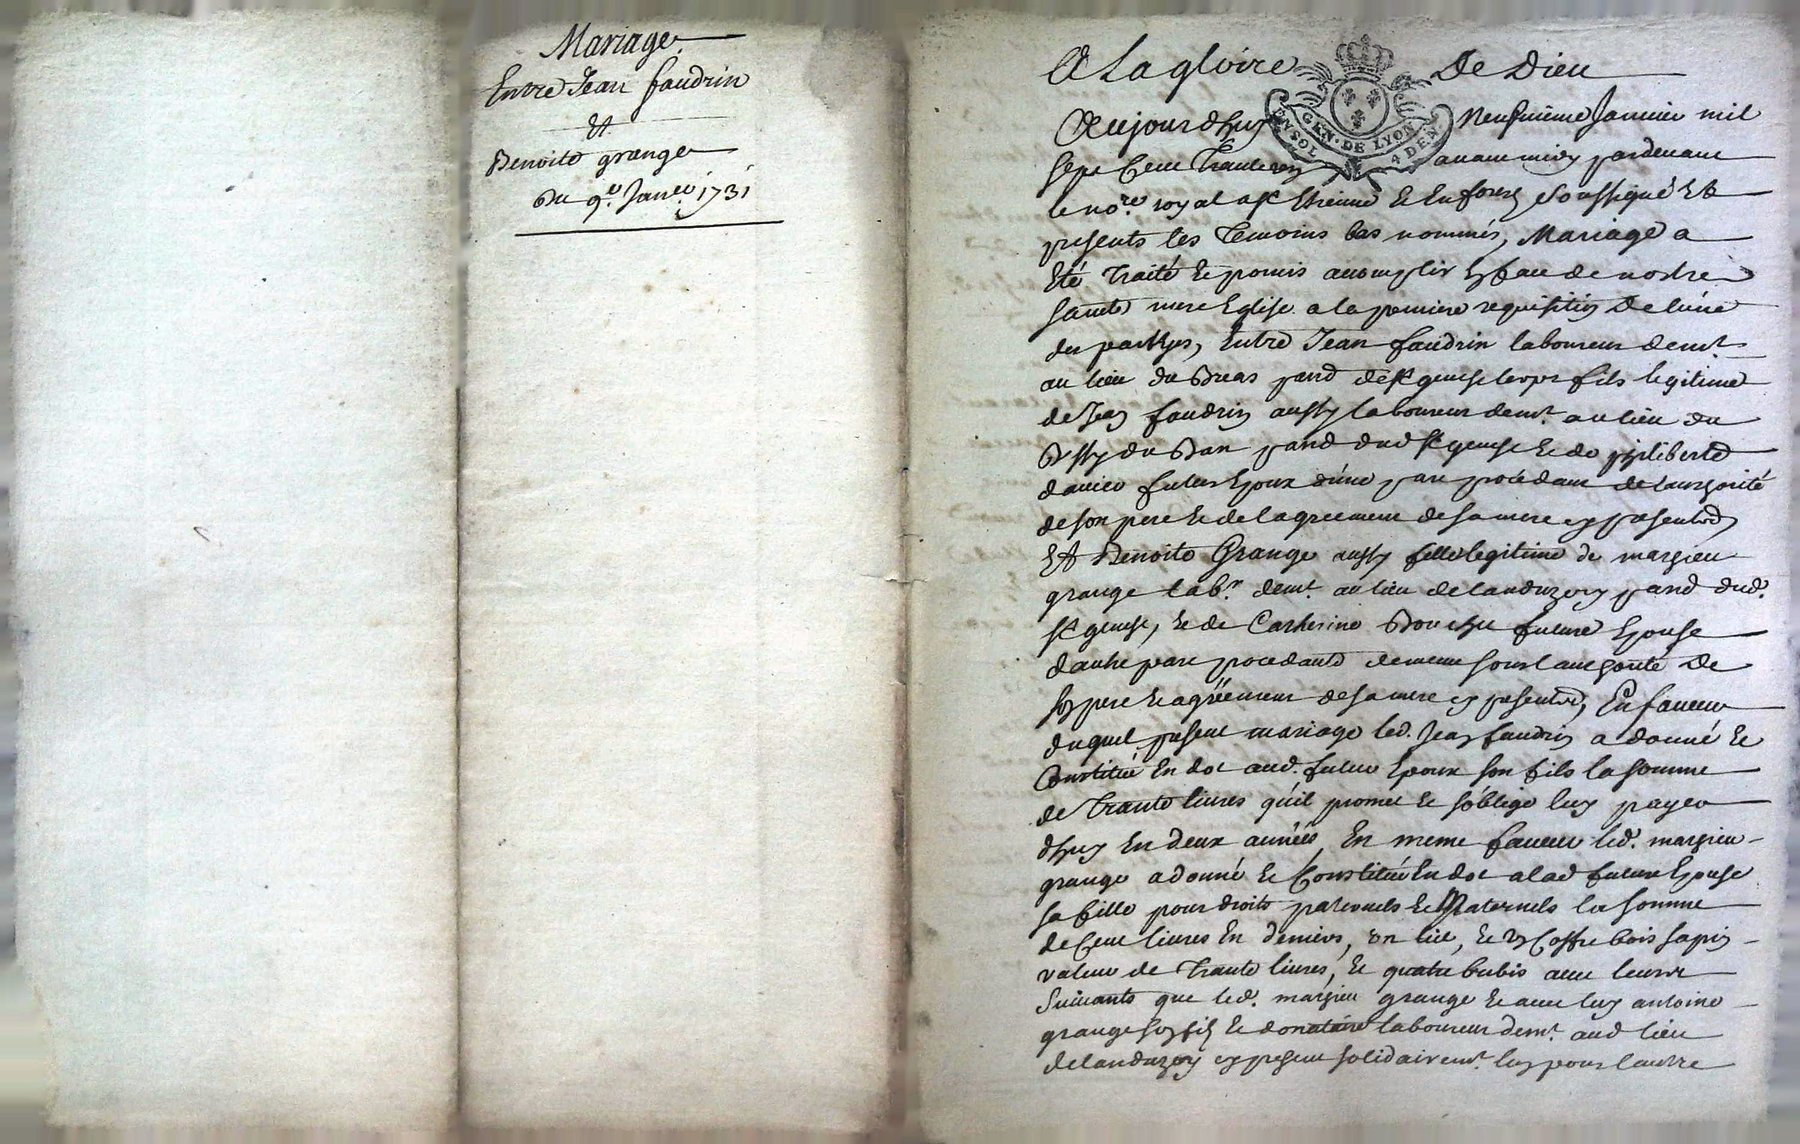 Mariage
Entre Jean faudrin
Et
Benoite grange
Du 9e. Janer. 1731
A La gloire De Dieu
GEN. DE LYON
UN SOL 4 DEN
Aujourdhuy neufvieme Janvier mil
sept Cent Trante avant midy pardevant
le nore. royal a St Etienne Et En forez soussigné Et
presents les Temoins bas nommés, Mariage a
Eté Traité Et promis accomplir En face de nostre
sainte mere Eglise a la premiere requisition De l'une
des parties, Entre Jean faudrin laboureur demt.
au lieu du parr de St genest fils legitime
de Jean faudrin aussy laboureur demt. au lieu du
du parr dud St genest Et de philiberte
futur Epoux d'une part procedant de l'authorité
de son pere Et de l'agreement de sa mere cy presents
Et Benoite Grange aussy fille legitime de mathieu
grange labr. demt. au lieu de parr dud.
St genest, Et de Catherine future Epouse
d'autre part procedante de meme sous l'authorité De
son pere Et agréement de sa mere cy presents, En faveur
duquel present mariage led. Jean faudrin a donné Et
Constitué En dot aud. futur Epoux son fils la somme
de Trante livres qu'il promet Et s'oblige luy payer
d'huy En deux années, En meme faveur led. mathieu
grange a donné Et Constitué En dot a lad future Epouse
sa fille pour droits paternels Et Maternels la somme
de Cent livres En deniers, un lit, Et un Coffre bois sapin
valeur de Trante livres, Et quatre brebis avec leurs
suivants que led. mathieu grange Et avec luy antoine
grange son fils Et donataire laboureur demt. aud lieu
de cy present solidairemt. l'un pour l'autre